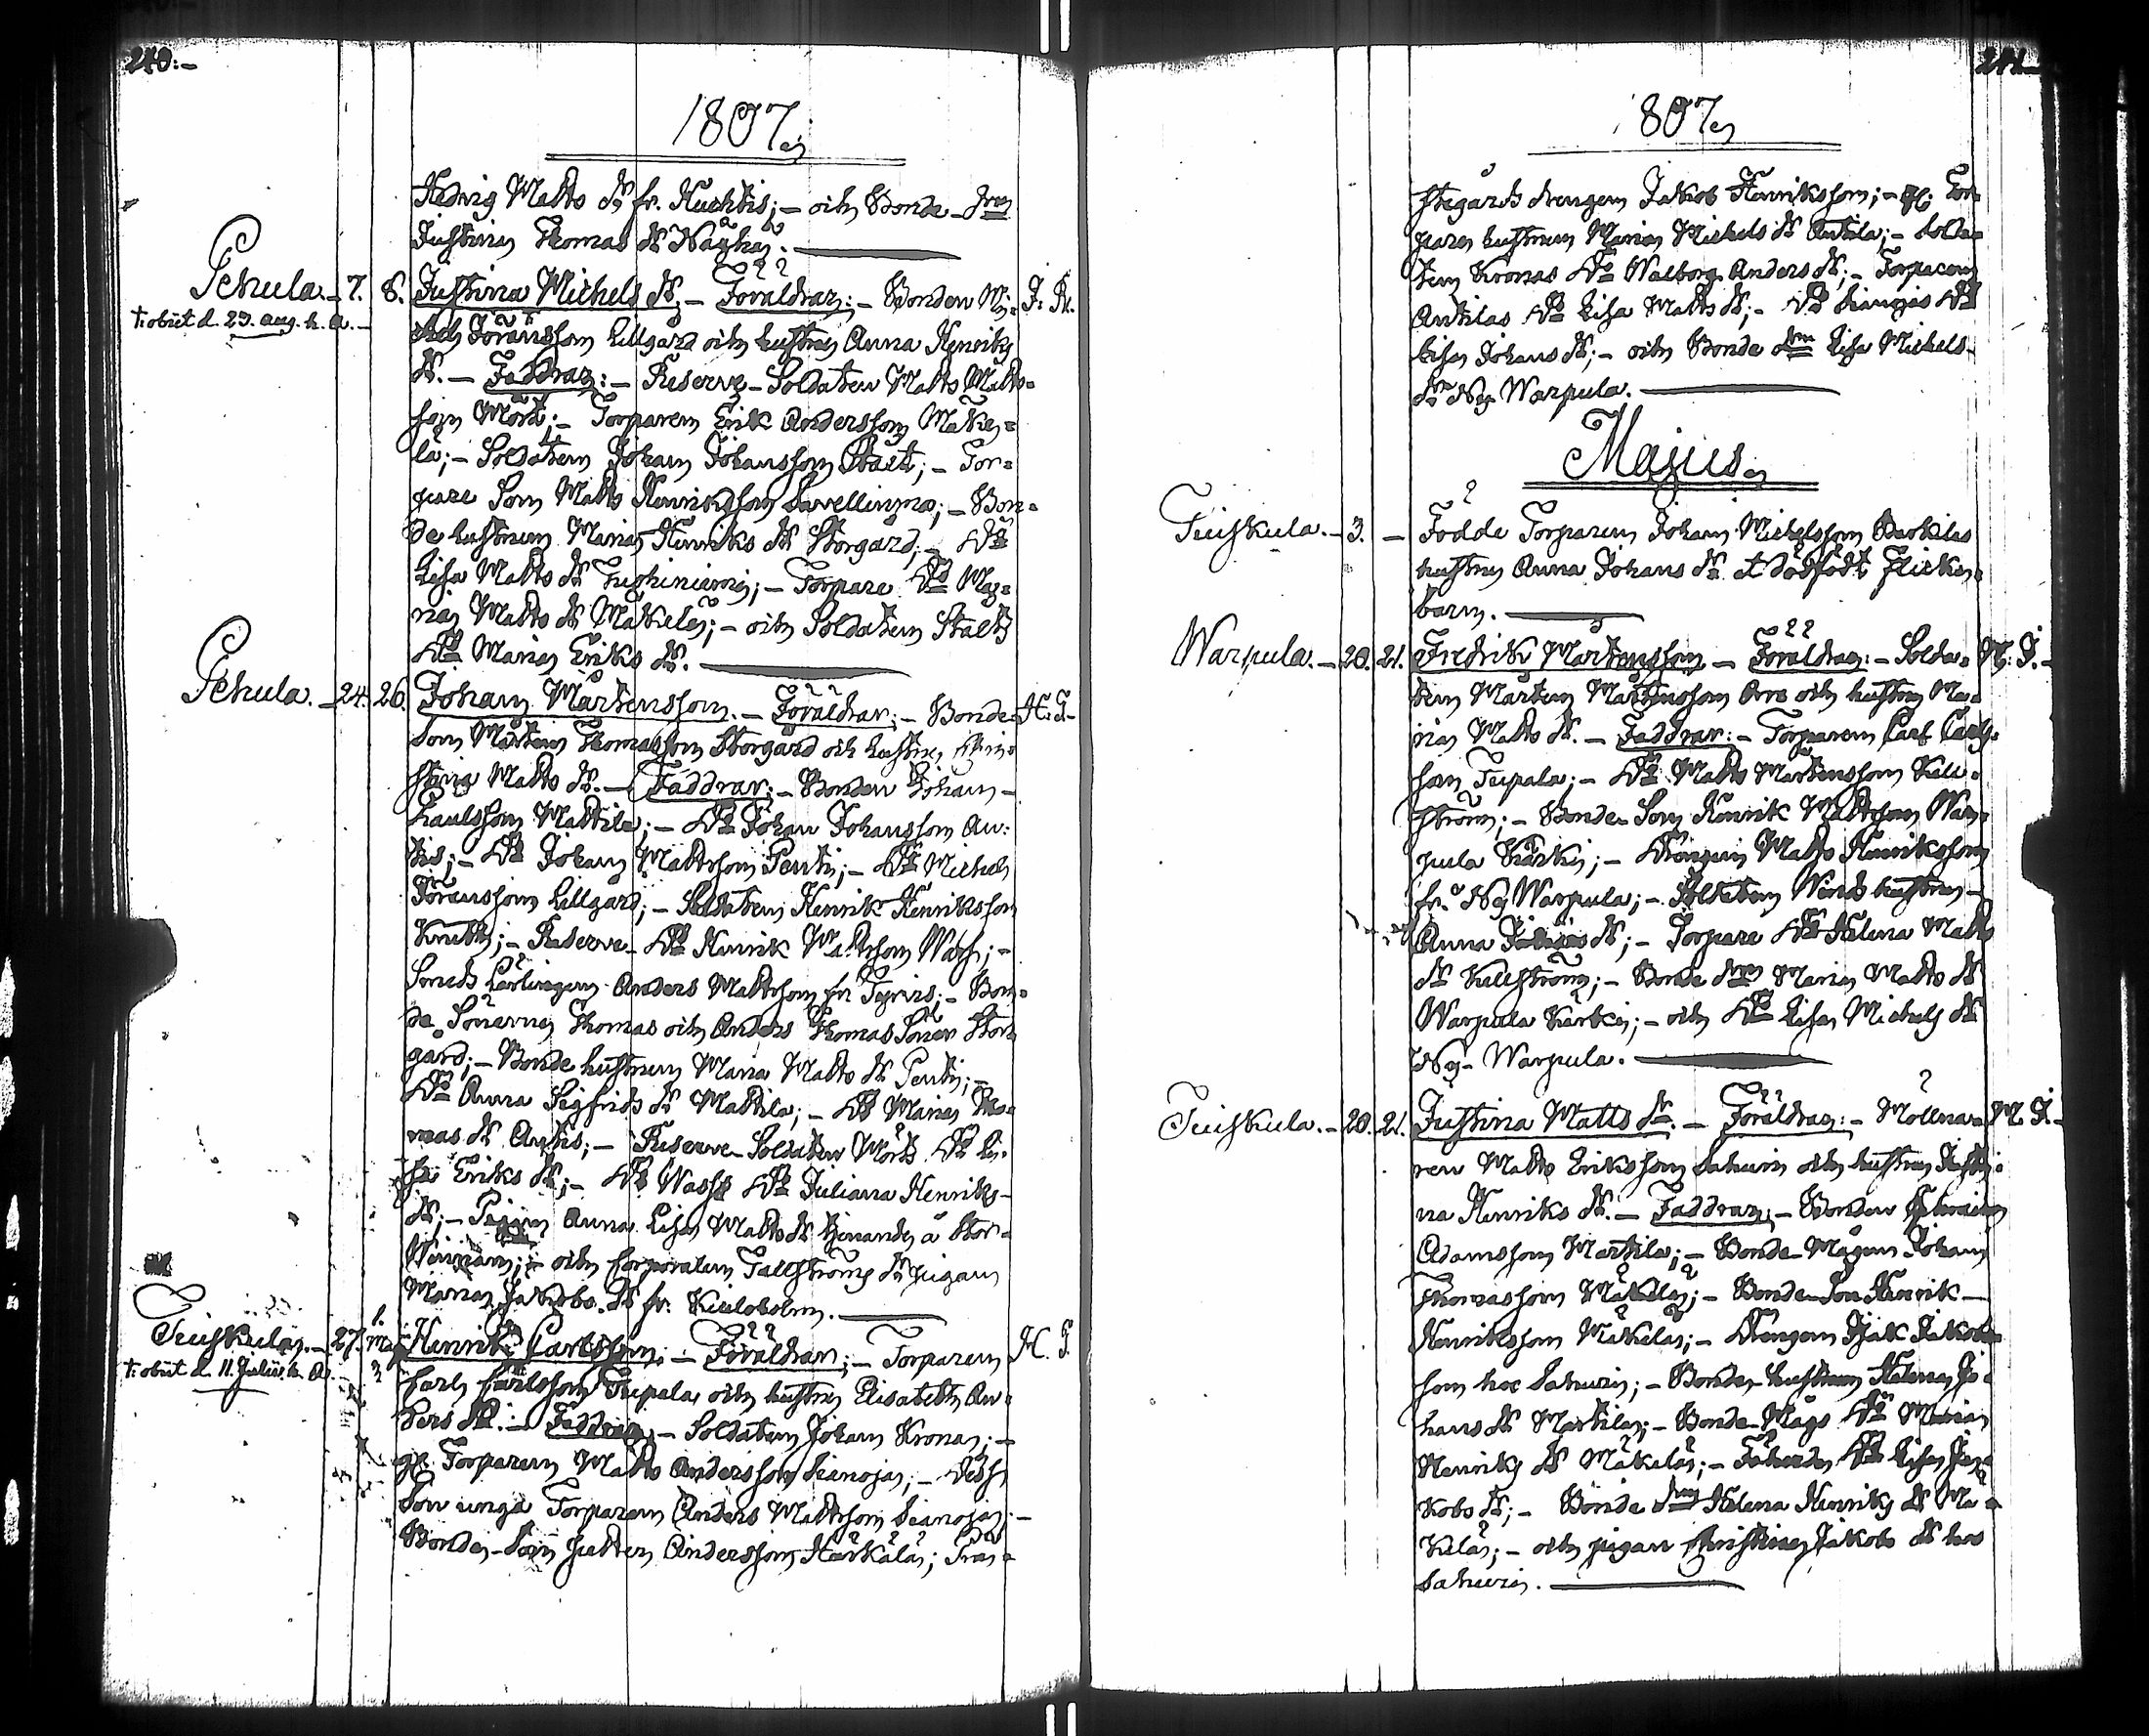 240:-
1807.
Hedvig Matts dr fr. Huchtis; - och Bonde drn
Justina Thomas dr Näyhä.
Pekula. - 7. 8. Justina Michels dr. - Föräldrar: - Bonden Mi- J. R.
t: obiit d. 23. aug. h. a. -
chel Göransson Lillgård och hustrun Anna Henriks
dr. - Faddrar: - Reserve-Soldaten Matts Matts-
son Mört; - Torparen Erik Andersson Mäke-
lä; - Soldaten Johan Johansson Stält; - Tor-
pare Son Matts Henriksson; - Bon-
de hustrun Maria Henriks dr Storgård; - do
Lisa Matts dr; - Torpare do Ma-
ria Matts dr Mäkelä; - och Soldaten Stälts
do Maria Eriks dr.
Pekula. - 24. 26. Johan Mårtensson. - Föräldrar: - Bonde- H. J.
Son Mårten Thomasson Storgård och hustrun Chri-
stina Matts dr. - Faddrar: - Bonden Johan
Paulsson Mattila; - do Johan Johansson An-
tis; - do Johan Mattsson Penti; - do Michel
Göransson Lillgård; - Soldaten Henrik Henriksson
; - Reserve do Henrik Mattsson Wass; -
Smeds Lärlingen Anders Mattsson fr. Tyrvis; - Bon-
de Sönerna Thomas och Anders Thomas Söner Stor-
gård; - Bonde hustrun Maria Matts dr Penti; -
do Anna Sigfrids dr Mattila; - do Maria Tho-
mas dr Antis; - Reserve-Soldaten Mörts do Li-
sa Eriks dr; - do Wass do Juliana Henriks
dr; - Pigan Anna Lisa Matts dr tjenande å Stor-
; - och Corporalen Tallströms dr pigan
Maria Jakobs dr fr.
Tuiskula. - 27. 1. Maj Henrik Carlsson. - Föräldrar: - Torparen H. J.
t: obiit d. 11. Julii h. a.
Carl Carlsson Tupala och hustrun Elisabeth An-
ders dr: - Faddrar: - Soldaten Johan Krona; -
gl. Torparen Matts Andersson Sianoja; - dess
Son unga Torparen Anders Mattsson Sianoja; -
Bonde-Son Petter Andersson Härkälä; Präs-
241.
1807.
stegårds drengen Jakob Henriksson; - gl. Tor-
paren hustrun Maria Michels dr Antila; - Solda-
ten Kronas do Walborg Anders dr; - Torparen
Antilas do Lisa Matts dr; - do Sianojas do
Lisa Johans dr; - och Bonde drn Lisa Michels
dr Ny Warpula.
Majus.
Tuiskula. - 3. - Födde Torparen Johan Michelsson Backilas
hustru Anna Johans dr et dödfödt Flicke-
barn.
Warpula. - 20. 21. Fredrik Mårtensson - Föräldrar: - Solda- M. J. -
ten Mårten Mårtensson Orre och hustru Ma-
ria Matts dr. - Faddrar: - Torparen Carl Carls-
son Tupala; - do Matts Mårtensson Käll-
ström; - Bonde-Son Henrik Mattsson War-
pula Kärki; - Drengen Matts Henriksson
fr. Ny Warpula; - Soldaten Winds hustru
Anna dr; - Torpare do Helena Matts
dr Källström; - Bonde drn Maria Matts dr
Warpula Kärki; - och do Lisa Michels dr
Ny-Warpula.
Tuiskula. - 20. 21. Justina Matts dr. - Föräldrar: - Möllna- M. J. -
ren Matts Eriksson Sahuri och hustrun Justi-
na Henriks dr. - Faddrar: - Bonden Ephraim
Adamsson Martila; - Bonde-Mågen Johan
Thomasson Mäkelä; - Bonde-Son Henrik
Henriksson Mäkelä; - Drengen Isak Jakobs-
son hos Sahuri; - Bonde-hustrun Helena Jo-
hans dr Martila; - Bonde-Mågs do Maria
Henriks dr Mäkelä; - do Lisa Ja-
kobs dr; - Bonde drn Helena Henriks dr Mä-
kelä; - och pigan Christina Jakobs dr hos
Sahuri.